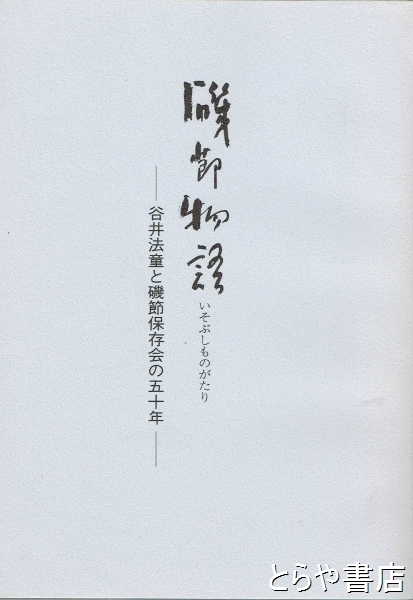 磯節物語
いそぶしものがたり
――谷井法童と磯節保存会の五十年――
とらや書店